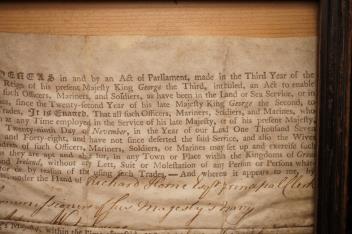 HEREAS in and by an Act of Parliament, made in the Third Year of the
Reign of his present Majesty King George the Third, intituled, An Act to enable
such Officers, Mariners, and Soldiers, as have been in the Land or Sea Service, or in
since the Twenty-second Year of his late Majesty King George the Second, to
Trades, It is Enacted, That all such Officers, Mariners, Soldiers, and Marines, who
at any Time employed in the Service of his late Majesty, or of his present Majesty,
Twenty-ninth Day of November, in the Year of our Lord One Thousand Seven
and Forty-eight, and have not since deserted the said Service, and also the Wives
of such Officers, Mariners, Soldiers, or Marines may set up and exercise such
they are apt and able for, in any Town or Place within the Kingdoms of Great
Ireland, without any Lett, Suit or Molestation of any Person or Persons what
for or by reason of the using such Trades,—And wheras it appears to me by
under the Hand of Richard Horne Esqr principal Clerk
his Majesty's Navy